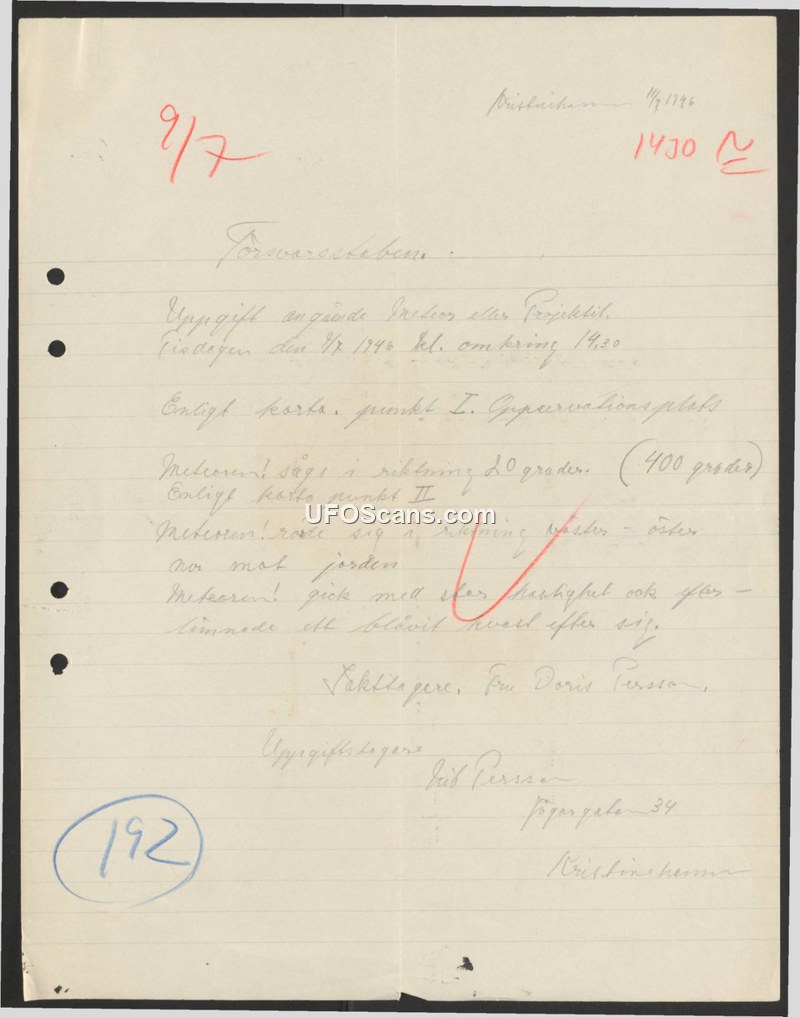 Kristinehamn 11/7 1946
9/7
1430
Försvarsstaben.
Uppgift angående Meteor eller Projektil.
Tisdagen den 9/7 1946 kl. omkring 14,30
Enligt karta. punkt I. Oppservationsplats
Meteoren! sågs i riktning 20 grader. (400 grader)
Enligt karta punkt II
UFOScans.com
Meteoren! rörde sig i riktning väster - öster
ner mot jorden
Meteoren! gick med stor hastighet ock efter-
lämnade ett blåvit kvast efter sig.
Iakttagare. Fru Doris Persson.
Uppgiftstagare
Persson
34
Kristinehamn
192